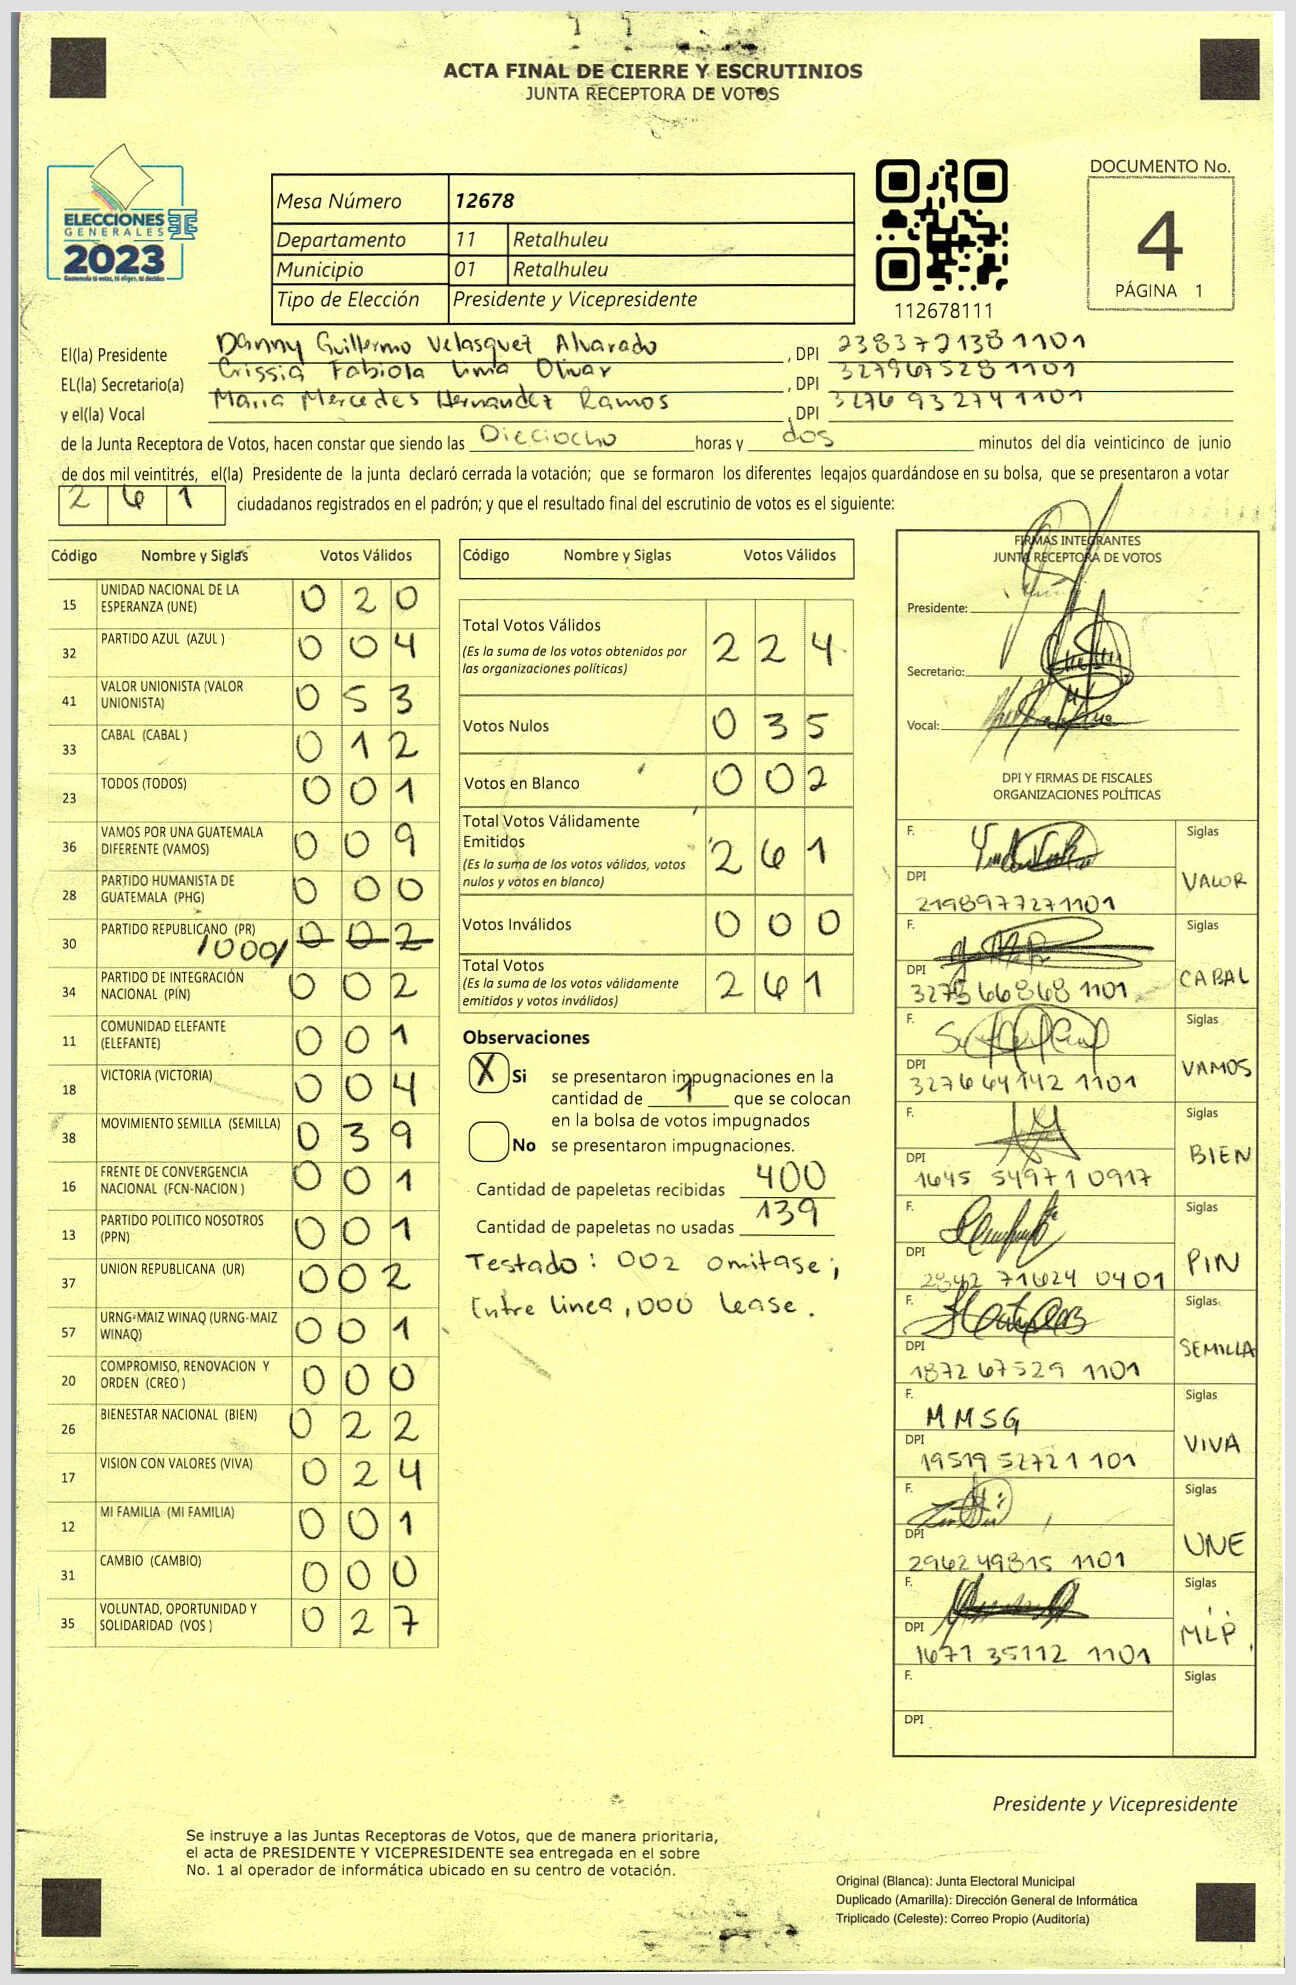 ACTA FINAL DE CIERRE Y ESCRUTINIOS
JUNTA RECEPTORA DE VOTOS
ELECCIONES
GENERALES
2023
Guatemala tú votas, tú eliges, tú decides
Mesa Número 12678
Departamento 11 Retalhuleu
Municipio 01 Retalhuleu
Tipo de Elección Presidente y Vicepresidente
112678111
DOCUMENTO No.
4
PÁGINA 1
El(la) Presidente Danny Guillermo Velasquez Alvarado , DPI 2383721381101
EL(la) Secretario(a) Crissia Fabiola Lima Olivar , DPI 3279675281101
y el(la) Vocal Maria Mercedes Hernandez Ramos , DPI 3276932741101
de la Junta Receptora de Votos, hacen constar que siendo las Dieciocho horas y dos minutos del día veinticinco de junio
de dos mil veintitrés, el(la) Presidente de la junta declaró cerrada la votación; que se formaron los diferentes legajos guardándose en su bolsa, que se presentaron a votar
261 ciudadanos registrados en el padrón; y que el resultado final del escrutinio de votos es el siguiente:
Código Nombre y Siglas Votos Válidos
15 UNIDAD NACIONAL DE LA ESPERANZA (UNE) 020
32 PARTIDO AZUL (AZUL ) 004
41 VALOR UNIONISTA (VALOR UNIONISTA) 053
33 CABAL (CABAL ) 012
23 TODOS (TODOS) 001
36 VAMOS POR UNA GUATEMALA DIFERENTE (VAMOS) 009
28 PARTIDO HUMANISTA DE GUATEMALA (PHG) 000
30 PARTIDO REPUBLICANO (PR) /000/ 002
34 PARTIDO DE INTEGRACIÓN NACIONAL (PIN) 002
11 COMUNIDAD ELEFANTE (ELEFANTE) 001
18 VICTORIA (VICTORIA) 004
38 MOVIMIENTO SEMILLA (SEMILLA) 039
16 FRENTE DE CONVERGENCIA NACIONAL (FCN-NACION ) 001
13 PARTIDO POLITICO NOSOTROS (PPN) 001
37 UNION REPUBLICANA (UR) 002
57 URNG-MAIZ WINAQ (URNG-MAIZ WINAQ) 001
20 COMPROMISO, RENOVACION Y ORDEN (CREO ) 000
26 BIENESTAR NACIONAL (BIEN) 022
17 VISION CON VALORES (VIVA) 024
12 MI FAMILIA (MI FAMILIA) 001
31 CAMBIO (CAMBIO) 000
35 VOLUNTAD, OPORTUNIDAD Y SOLIDARIDAD (VOS ) 027
Código Nombre y Siglas Votos Válidos
Total Votos Válidos 224
(Es la suma de los votos obtenidos por
las organizaciones políticas)
Votos Nulos 035
Votos en Blanco 002
Total Votos Válidamente
Emitidos 261
(Es la suma de los votos válidos, votos
nulos y votos en blanco)
Votos Inválidos 000
Total Votos 261
(Es la suma de los votos válidamente
emitidos y votos inválidos)
Observaciones
X Si se presentaron impugnaciones en la
cantidad de 1 que se colocan
en la bolsa de votos impugnados
No se presentaron impugnaciones.
Cantidad de papeletas recibidas 400
Cantidad de papeletas no usadas 139
Testado: 002 omitase;
Entre linea, 000 lease.
FIRMAS INTEGRANTES
JUNTA RECEPTORA DE VOTOS
Presidente:
Secretario:
Vocal:
DPI Y FIRMAS DE FISCALES
ORGANIZACIONES POLÍTICAS
F. Siglas
DPI 2198977271101 VALOR
F. Siglas
DPI 3275668681101 CABAL
F. Siglas
DPI 3276641421101 VAMOS
F. Siglas
DPI 1645 54971 0917 BIEN
F. Siglas
DPI 2842 71624 0401 PIN
F. Siglas
DPI 1872 67529 1101 SEMILLA
F. MMSG Siglas
DPI 19519 52721 101 VIVA
F. Siglas
DPI 296249815 1101 UNE
F. Siglas
DPI 1671 35112 1101 MLP
F. Siglas
DPI
Presidente y Vicepresidente
Se instruye a las Juntas Receptoras de Votos, que de manera prioritaria,
el acta de PRESIDENTE Y VICEPRESIDENTE sea entregada en el sobre
No. 1 al operador de informática ubicado en su centro de votación.
Original (Blanca): Junta Electoral Municipal
Duplicado (Amarilla): Dirección General de Informática
Triplicado (Celeste): Correo Propio (Auditoría)